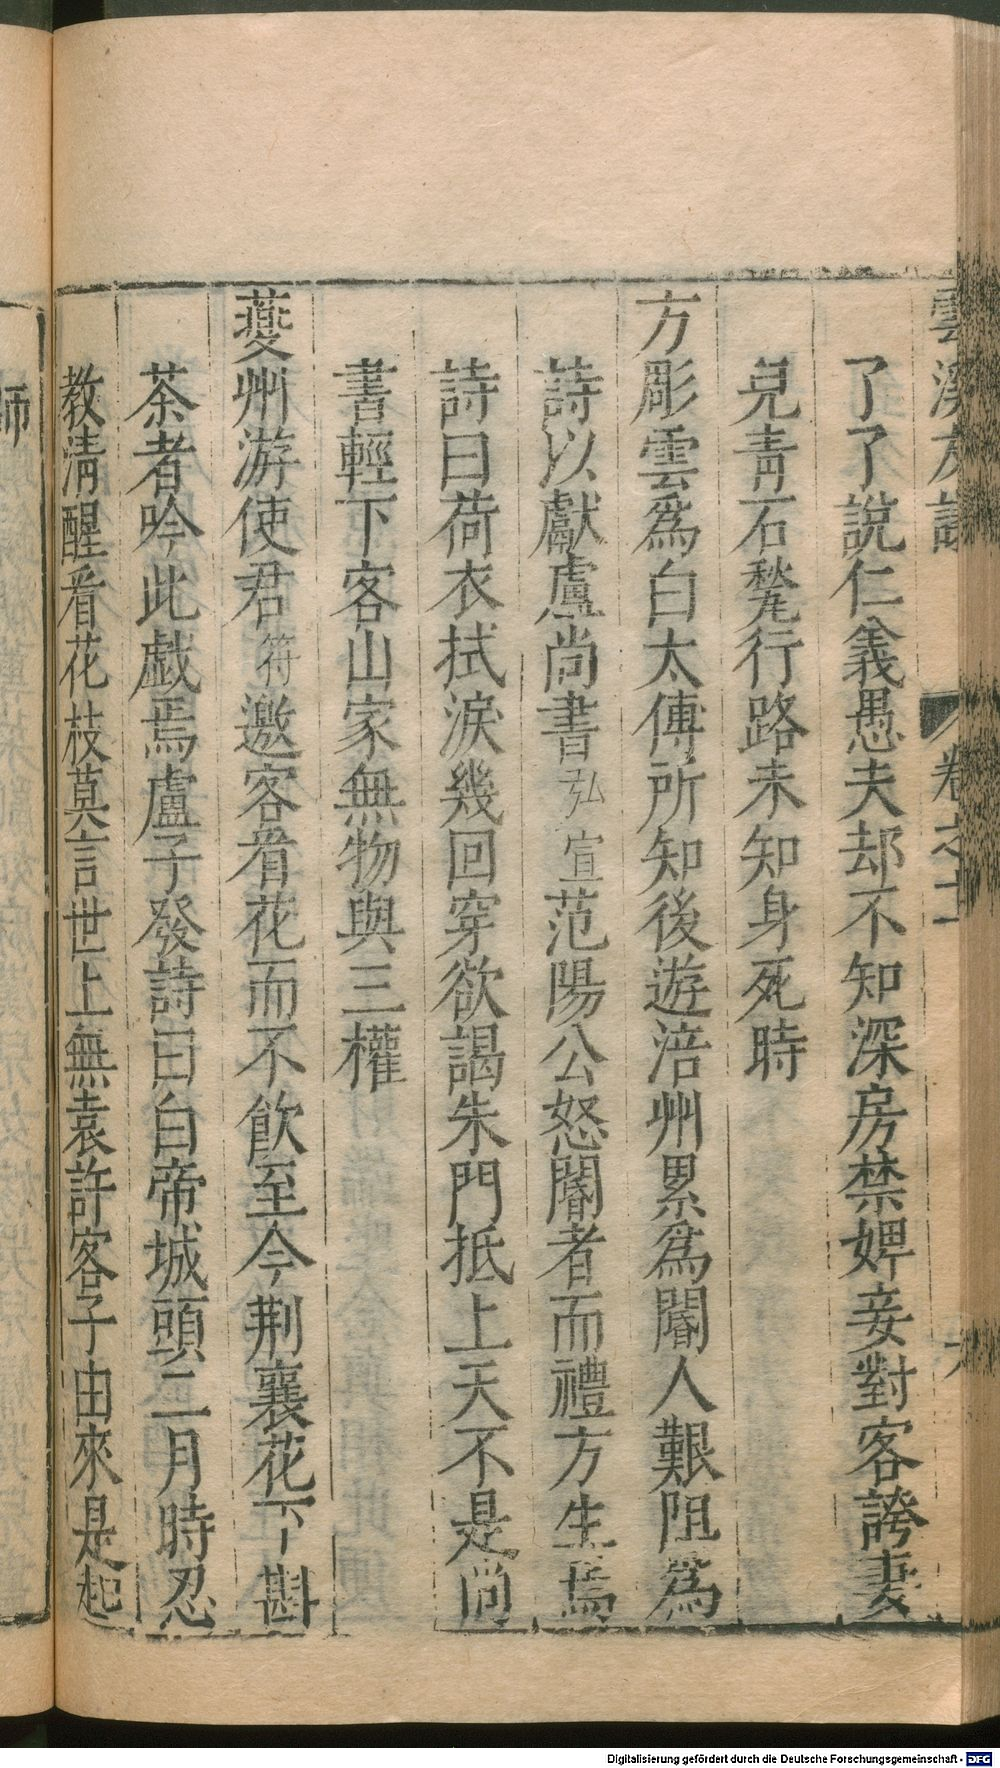 雲溪友議 卷之下 六
了了說仁義愚夫却不知深房禁婢妾對客誇妻
皃青石甃行路未知身死時
方彫雲爲白太傅所知後遊涪州累爲閽人艱阻爲
詩以獻盧尚書弘宣范陽公怒閽者而禮方生焉
詩曰荷衣拭淚幾回穿欲謁朱門抵上天不是尚
書輕下客山家無物與三權
夔州游使君符邀客看花而不飲至今荆襄花下斟
茶者吟此戯焉盧子發詩曰白帝城頭二月時忍
教清醒看花枝莫言世上無袁許客子由來是起
師
Digitalisierung gefördert durch die Deutsche Forschungsgemeinschaft - DFG